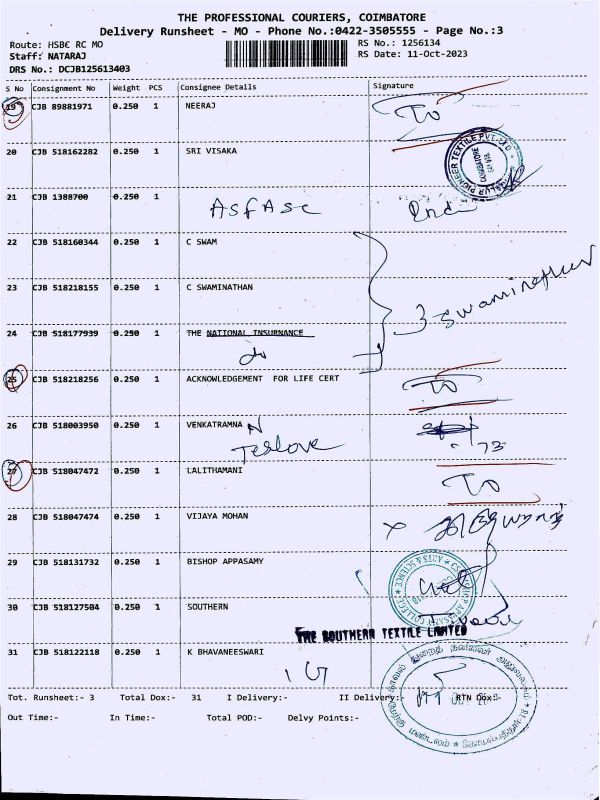 THE PROFESSIONAL COURIERS, COIMBATORE
Delivery Runsheet - MO - Phone No.:0422-3505555 - Page No.:3
Route: HSBC RC MO
RS No.: 1256134
Staff: NATARAJ
RS Date: 11-Oct-2023
DRS No.: DCJB125613403
S No Consignment No Weight PCS Consignee Details Signature
19 CJB 89881971 0.250 1 NEERAJ To
20 CJB 518162282 0.250 1 SRI VISAKA
PIONEER TEXTILE PVT. LTD
COIMBATORE
21 CJB 1388700 0.250 1
22 CJB 518160344 0.250 1 C SWAM
23 CJB 518218155 0.250 1 C SWAMINATHAN
3 Swaminathan
24 CJB 518177939 0.250 1 THE NATIONAL INSURNANCE
do
25 CJB 518218256 0.250 1 ACKNOWLEDGEMENT FOR LIFE CERT To
26 CJB 518003950 0.250 1 VENKATRAMNA N
27 CJB 518047472 0.250 1 LALITHAMANI To
28 CJB 518047474 0.250 1 VIJAYA MOHAN
29 CJB 518131732 0.250 1 BISHOP APPASAMY
BISHOP APPASAMY COLLEGE OF ARTS & SCIENCE
30 CJB 518127504 0.250 1 SOUTHERN
THE SOUTHERN TEXTILE LIMITED
31 CJB 518122118 0.250 1 K BHAVANEESWARI
Tot. Runsheet:- 3 Total Dox:- 31 I Delivery:- II Delivery:- RTN Dox:-
Out Time:- In Time:- Total POD:- Delvy Points:-